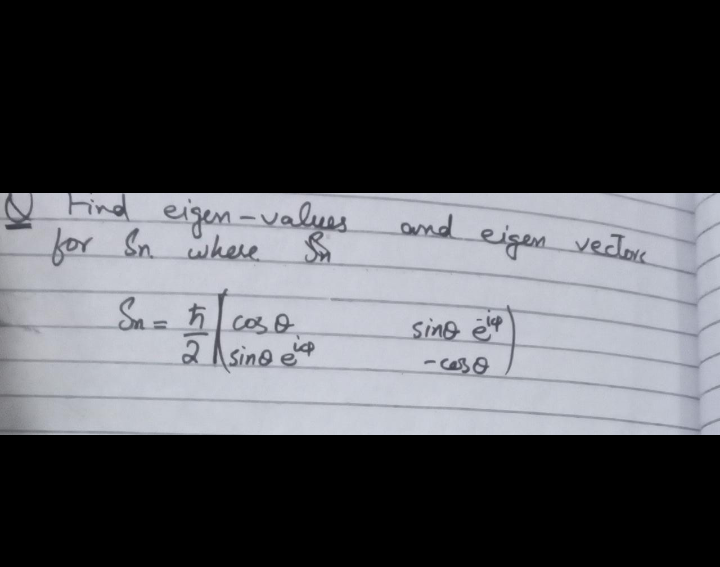 Q Find eigen-values and eigen vectors
for Sn where Sn
Sn = ħ/2 ( cosθ sinθ e^-iφ
sinθ e^iφ -cosθ )